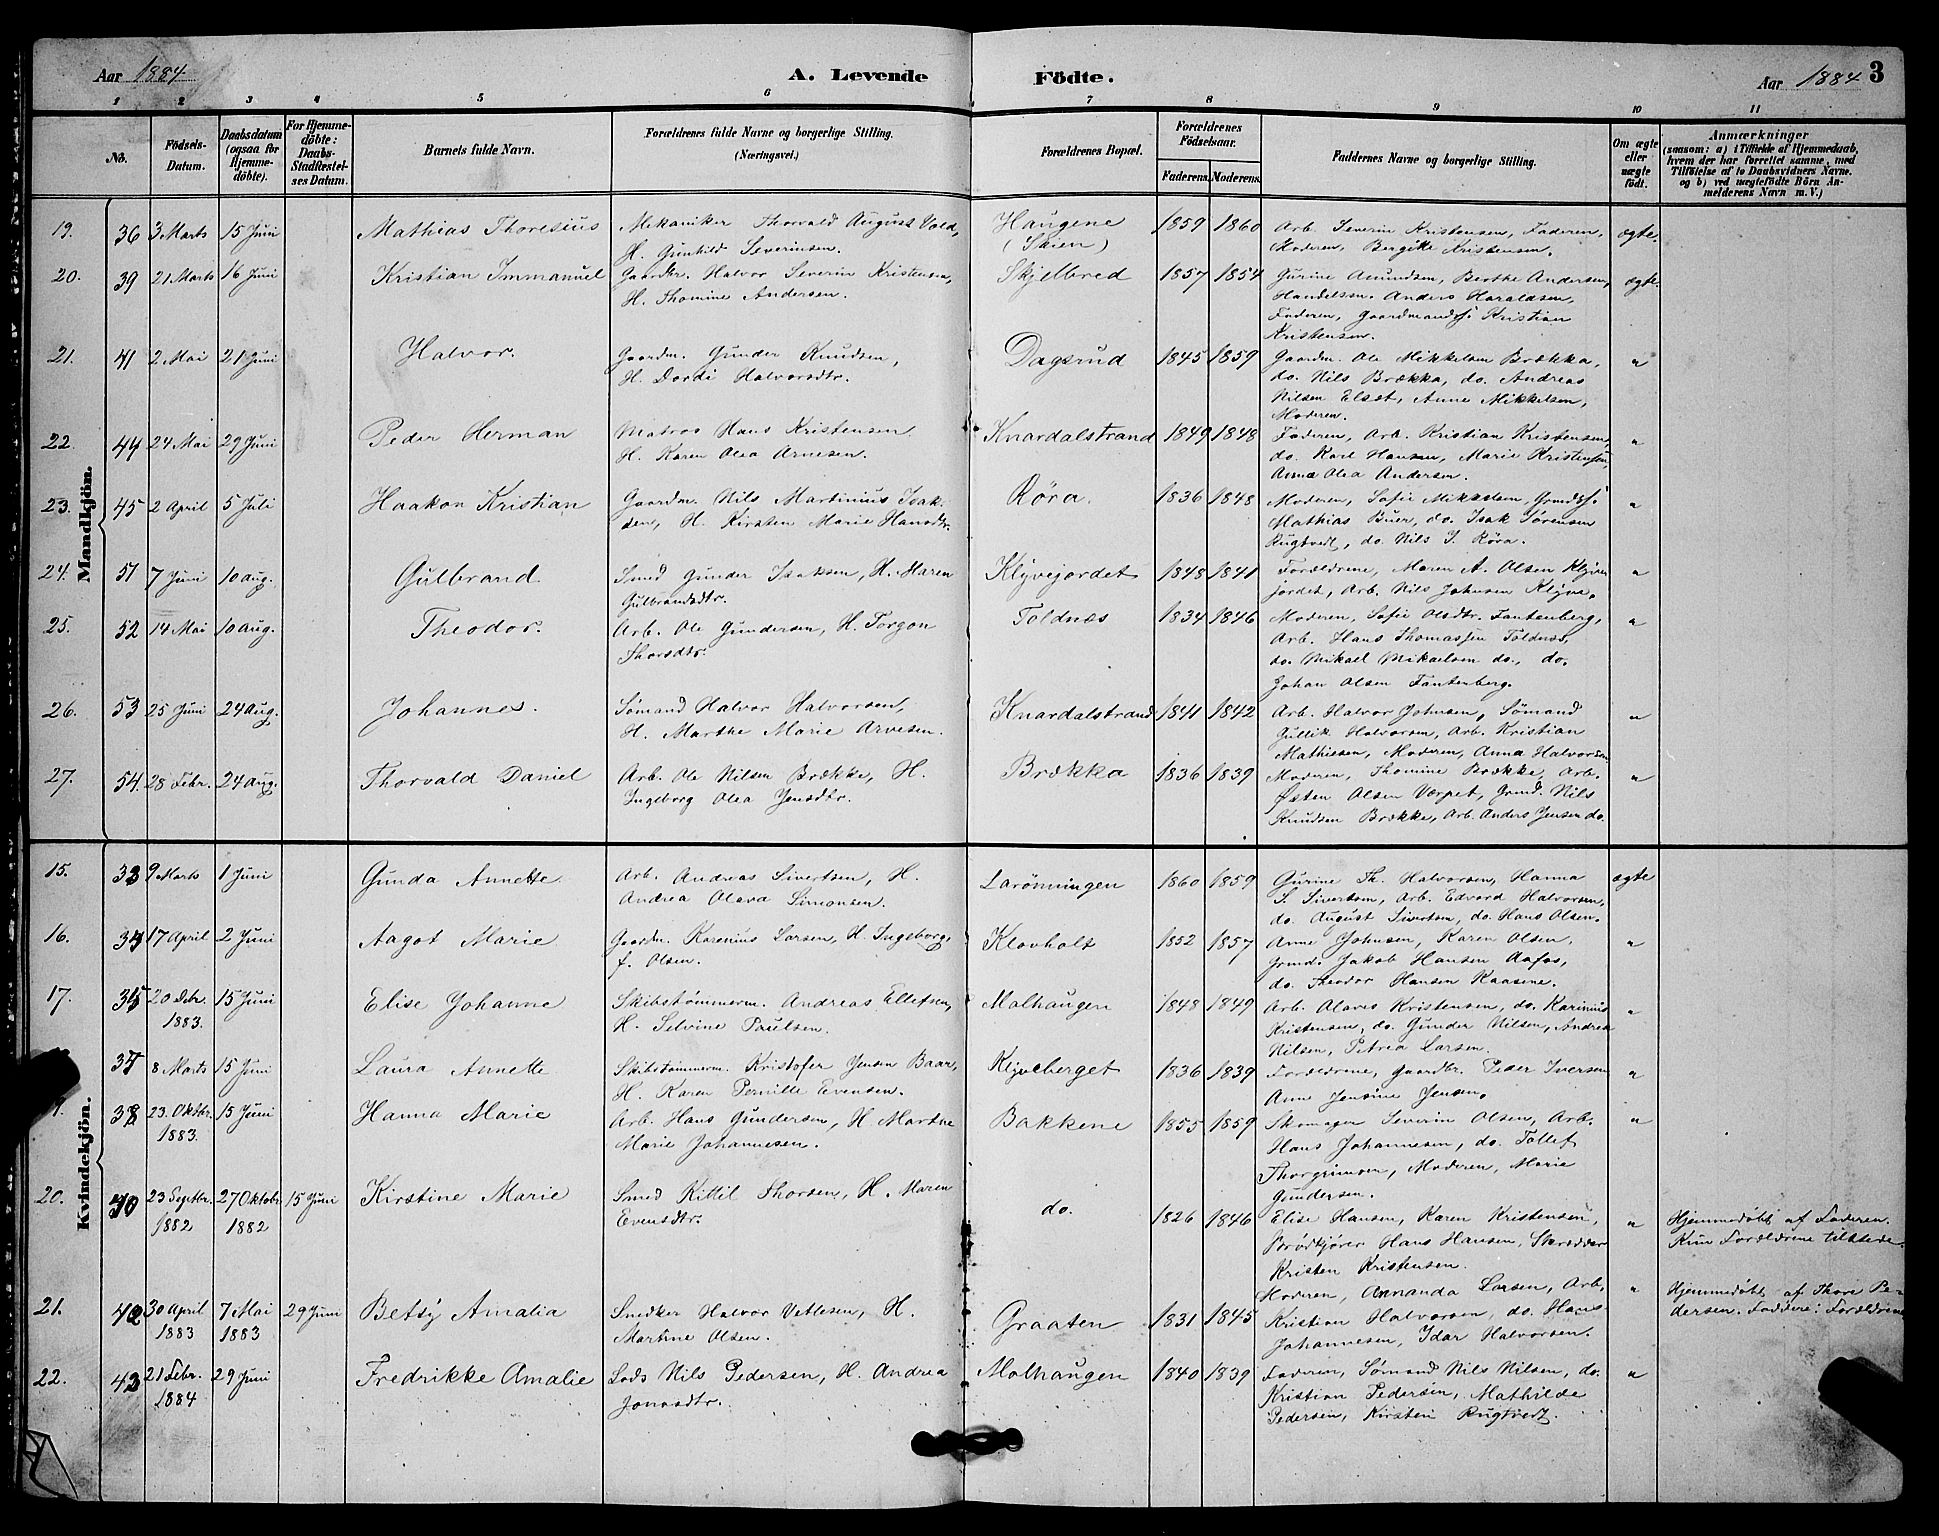 Aar 1884. A. Levende Födte. Aar 1884 3
1 2 3 4 5 6 7 8 9 10 11
No. Födsels-Datum. Daabsdatum (ogsaa for Hjemmedöbte). For Hjemmedöbte: Daabs-Stadfæstelses Datum. Barnets fulde Navn. Forældrenes fulde Navne og borgerlige Stilling. (Næringsvei.) Forældrenes Bopæl. Forældrenes Födselsaar. Faderens. Moderens. Faddernes Navne og borgerlige Stilling. Om ægte eller uægte födt. Anmærkninger (saasom: a) i Tilfælde af Hjemmedaab, hvem der har forrettet samme, med Tilföielse af to Daabsvidners Navne, og b) ved uægtefödte Börn Anmelderens Navn m.V.)
Mandkjön.
19. 36 3 Marts 15 Juni Mathias Thoresius Mekaniker Thorvald August Vold, Haugene 1859 1860 Arb. Severin Kristensen, Faderen, ægte.
H. Gunhild Severinsen. (Saien) Moderen, Bergitte Kristensen.
20. 39 21 Marts 16 Juni Kristian Immanuel Gaardbr. Halvor Severin Kristensen, Skjelbred 1857 1854 Gurine Amundsen, Berthe Andersen, ægte.
H. Thomine Andersen. Handelsm. Anders Haraldsen,
Faderen, Gaardmands. Kristian
Kristensen.
21. 41 2 Mai 21 Juni Halvor. Gaardm. Gunder Knudsen, Dagsrud 1845 1859 Gaardm. Ole Mikkelsen Brække, "
H. Dordi Halvorsdtr. do. Nils Brække, do. Andreas
Nilsen Elset, Anne Mikkelsen,
Moderen.
22. 44 24 Mai 29 Juni Peder Herman Matros Hans Kristensen Knardalstrand 1849 1848 Faderen, Arb. Kristian Kristensen, "
H. Karen Olea Arnesen. do. Karl Hansen, Marie Kristensen,
Anne Olea Andersen.
23. 45 2 April 5 Juli Haakon Kristian Gaardm. Nils Martinius Isak- Röra. 1836 1848 Moderen, Sofie Mikkelsen, Grmds. "
sen, H. Kirsten Marie Hansdtr. Mathias Buer, do. Isak Sörensen
Rugtvedt, do. Nils I. Röra.
24. 51 7 Juni 10 Aug. Gulbrand Smed Gunder Isaksen, H. Maren Klyvejordet 1848 1841 Forældrene, Maren A. Olsen Klyve- "
Gulbrandsdtr. jordet, Arb. Nils Johnsen Klyve.
25. 52 14 Mai 10 Aug. Theodor. Arb. Ole Gundersen, H. Torgon Toldnæs 1834 1846 Moderen, Sofie Olsdtr. Fantenberg, "
Thorsdtr. Arb. Hans Thomassen Toldnæs,
do. Mikael Mikaelsen do., do.
Johan Olsen Fantenberg.
26. 53 25 Juni 24 Aug. Johannes. Sömand Halvor Halvorsen, Knardalstrand 1841 1842 Arb. Halvor Johnsen, Sömand "
H. Marthe Marie Arvesen. Gullik Halvorsen, Arb. Kristian
Mathiesen, Moderen, Anna Halvorsen
27. 54. 28 Febr. 24 Aug. Thorvald Daniel Arb. Ole Nilsen Brække, H. Brækka 1836 1839 Moderen, Thomine Brække, Arb. "
Ingeborg Olea Jensdtr. Østen Olsen Værpet, Grmd. Nils
Knudsen Brække, Arb. Anders Jensen do.
Kvindekjön.
15. 33 9 Marts 1 Juni Gunda Annette Arb. Andreas Sivertsen, H. Larönningen 1860 1859 Gurine Th. Halvorsen, Hanna ægte
Andrea Olava Simonsen. S. Sivertsen, Arb. Edvard Halvorsen,
do. August Sivertsen, do. Hans Olsen.
16. 34 17 April 2 Juni Aagot Marie Gaardm. Karenius Larsen, H. Ingeborg, Klovholt 1852 1857 Anne Johnsen, Karen Olsen, "
f. Olsen. Grmd. Jakob Hansen Aafos,
do. Theodor Hansen Kaasene.
17. 35 20 Dcbr. 15 Juni Elise Johanne Skibstömmerm. Andreas Ellefsen, Molhaugen 1848 1849 Arb. Olaves Kristensen, do. Karinius "
1883. H. Selvine Paulsen. Kristensen, do. Gunder Nilsen, Andrea
Nilsen, Petrea Larsen.
37 8 Marts 15 Juni Laura Annette Skibstömmerm. Kristofer Jensen Baar, Klyveberget 1836 1839 Forældrene, Gaardbr. Peder Iversen "
H. Karen Pernille Evensen. Anne Jensine Jensen.
9. 38 23. Oktbr. 15 Juni Hanna Marie Arb. Hans Gundersen, H Marthe Bakkene 1855 1859 Skomager Severin Olsen, Arb. "
1883. Marie Johannesen. Hans Johannesen, do. Tollef
Thorgrimsen, Moderen, Marie
Gundersen.
20. 40 23 Septbr. 27 Oktobr 15 Juni Kirstine Marie Smed Kittil Thorsen, H. Maren do. 1826 1846 Elise Hansen, Karen Kristensen, " Hjemmedöbt af Faderen.
1882 1882 Evensdtr. Brödkjörer Hans Hansen, Skrædder Kun Forældrene tilstede.
Kristen Kristensen.
21. 42 30 April 7 Mai 29 Juni Betsy Amalia Snedker Halvor Vetlesen, H. Graaten 1831 1845 Moderen, Amanda Larsen, Arb. " Hjemmedöbt af Thore Pe-
1883 1883 Martine Olsen. Kristian Halvorsen, do. Hans dersen. Faddere: Forældrene
Johannesen, Idar Halvorsen.
22. 43 21 Febr. 29 Juni Fredrikke Amalie Lods Nils Pedersen, H. Andrea Molhaugen 1840 1839 Faderen, Sömand Nils Nilsen, do. "
1884 Jonasdtr. Kristian Pedersen, Mathilde
Pedersen, Kirsten Rugtvedt.